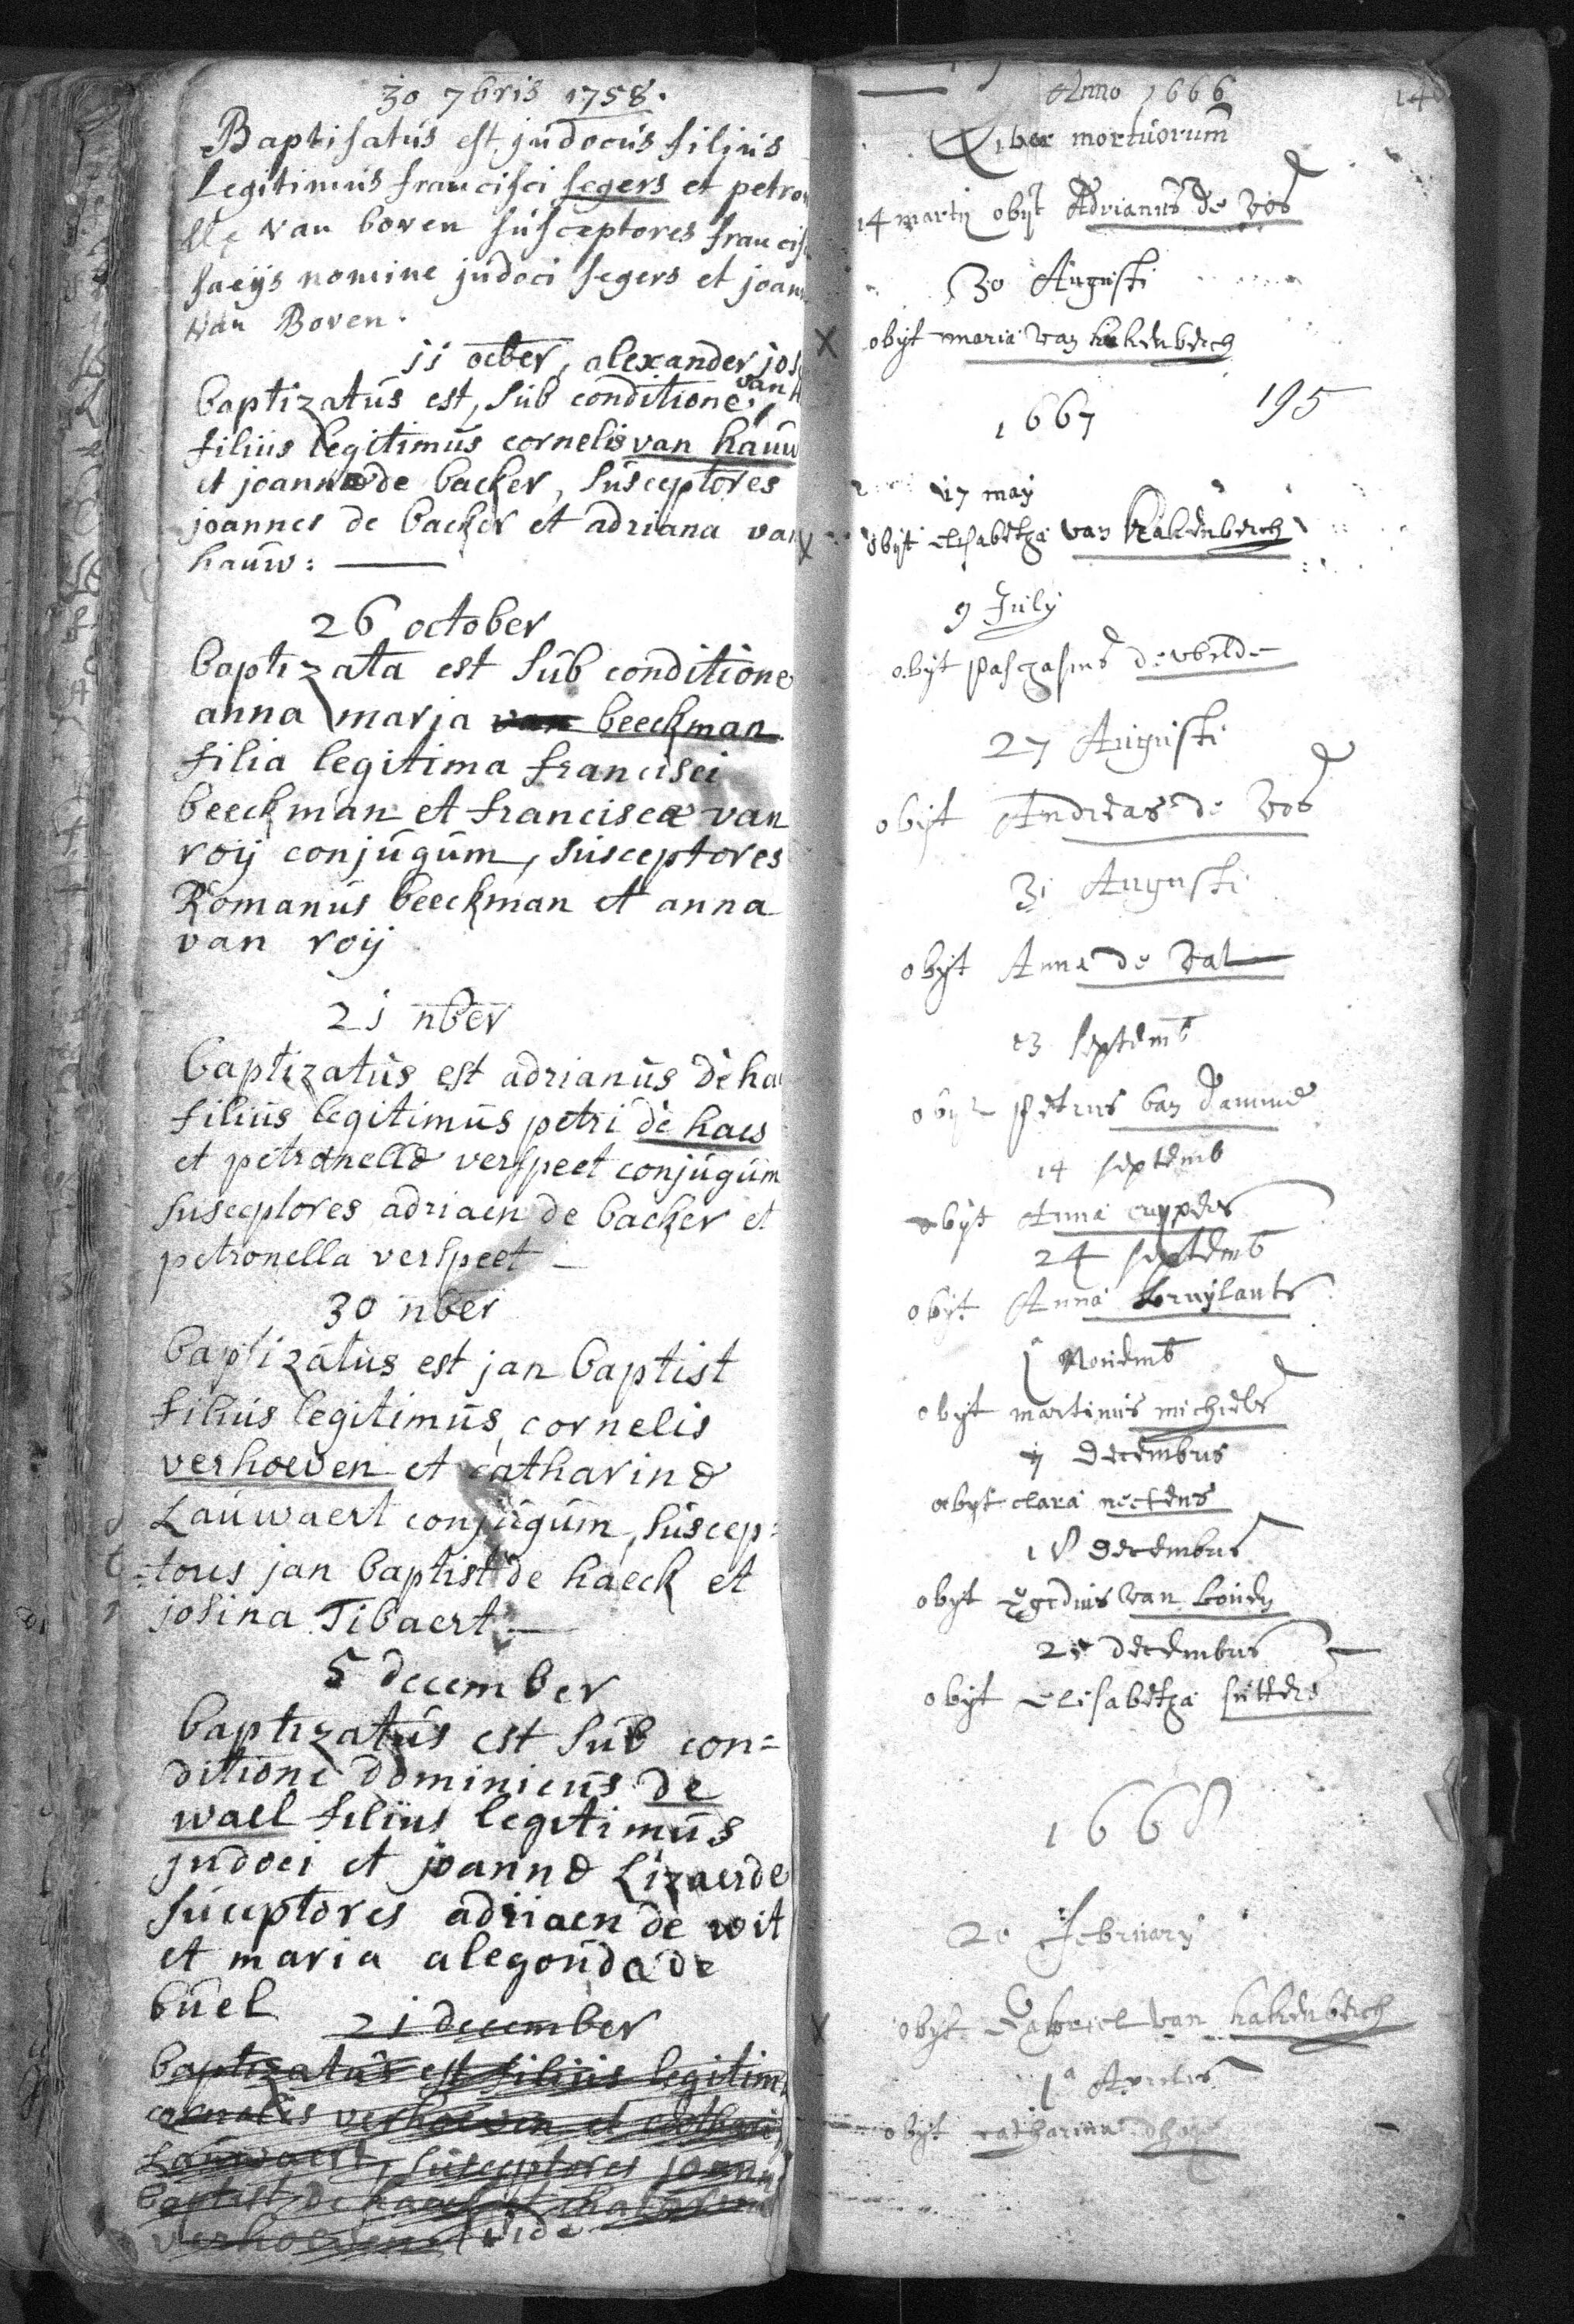 30 7bris 1758.
Baptisatus est judocus filius
Legitimus francisci segers et petro
van boven susceptores francis
saeijs nomine judoci segers et joan
van Boven.
11 octber, alexander jos
van h
baptizatus est, sub conditione,
filius legitimus cornelis van hauw
et joannæ de backer, susceptores
joannes de backer et adriana van
hauw:
26 october
baptizata est sub conditione
anna maria van beeckman
filia legitima francisci
beeckman et franciscæ van
roij conjugum, susceptores
Romanus beeckman et anna
van roij
21 nber
baptizatus est adrianus de ha
filius legitimus petri de haes
et petronellæ verspeet conjugum
susceptores adriaen de backer et
petronella verspeet
30 nber
baptizatus est jan baptist
filius legitimus cornelis
verhoeven et catharinæ
Lauwaert conjugum, suscep=
=tores jan baptist de haeck et
josina Tibaert
5 december
baptizatus est sub con=
ditione dominicus de
wael filius legitimus
judoci et joannæ Lizaerde
suceptores adriaen de wit
et maria alegonda de
buel
21 december
baptizatus est filius legitim
cornelis verhoeven et cathari
Lauwaert, susceptores joann
baptist de haeck et
verhoeven vide
Anno 1666
Liber mortuorum
14 martij obijt Adrianus de Vos
30 Augusti
X obijt maria van hakenberch
1667 195
17 maij
X obijt elisabetha van hakenberch
9 Julij
obijt Paschasius de velde
27 Augusti
obijt Andreas de Vos
31 Augusti
obijt Anna de Wal
13 septemb
obijt Petrus van damme
14 septemb
obijt Anna cuypers
24 septemb
obijt Anna bruylants
1a Novemb
obijt martinus michiels
7 decembris
obijt clara
18 decembris
obijt Egidius van
decembris
obijt Elisabetha sutters
1668
20 February
X obijt Gabriel van hakenberch
1a Aprilis
obijt catharina